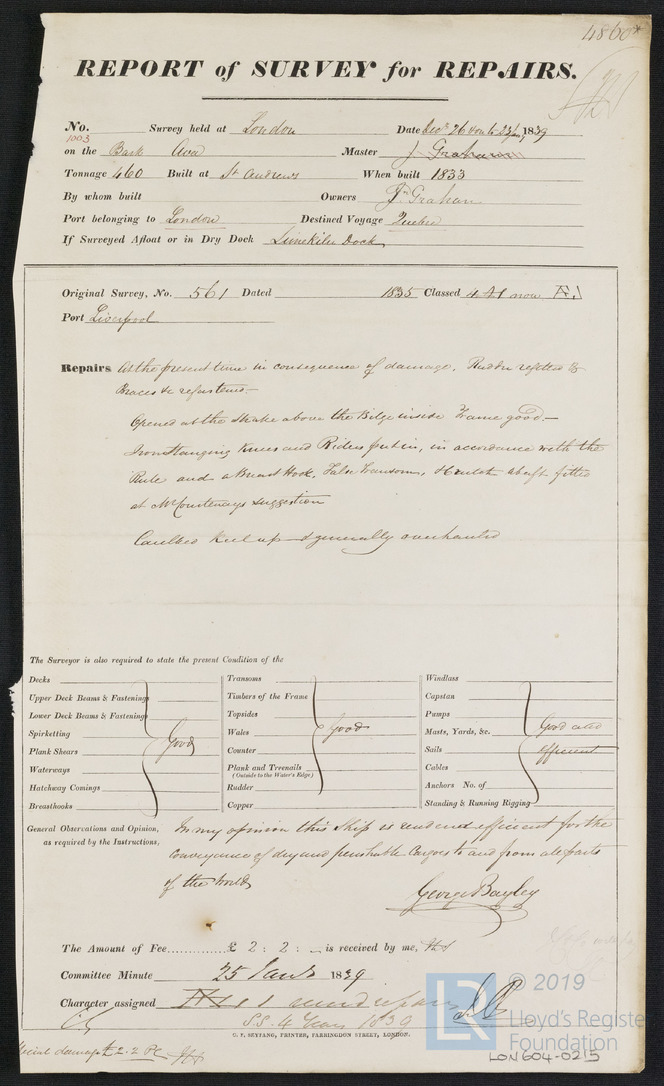 4860*
REPORT of SURVEY for REPAIRS.
No. 1003 Survey held at London Date Decr 26 1838 to 23 Jany 1839
on the Bark Ava Master J Graham
Tonnage 460 Built at St Andrews When built 1833
By whom built Owners Jn Graham
Port belonging to London Destined Voyage Quebec
If Surveyed Afloat or in Dry Dock Limekiln Dock
Original Survey, No. 561 Dated 1835 Classed 4 A1 now Æ1
Port Liverpool
Repairs At the present time in consequence of damage. Rudder refitted &
Braces &c refastened—
Opened at the Strake above the Bilge inside Frame good—
Iron Hanging Knees and Riders put in, in accordance with the
Rule and a Breast Hook, False Transom, & Crutch abaft fitted
at Mr Courtenays suggestion
Caulked Keel up and generally overhauled
The Surveyor is also required to state the present Condition of the
Decks Transoms Windlass
Upper Deck Beams & Fastenings Timbers of the Frame Capstan
Lower Deck Beams & Fastenings Topsides Pumps
Spirketting Good Wales Good Masts, Yards, &c. Good and
Plank Shears Counter Sails efficient
Waterways Plank and Treenails Cables
(Outside to the Water's Edge)
Hatchway Comings Rudder Anchors No. of
Breasthooks Copper Standing & Running Rigging
General Observations and Opinion, In my opinion this Ship is rendered efficient for the
as required by the Instructions, Conveyance of dry and perishable Cargoes to and from all parts
of the World
George Bayley
The Amount of Fee............... £ 2 : 2 : — is received by me,
Committee Minute 25 Jany 1839
Character assigned Æ 1
S.S. 4 Years 1830
C. F. SEYFANG, PRINTER, FARRINGDON STREET, LONDON.
Special damage £2.2
© 2019
LR
Lloyd's Registe
Foundation
LON604-0215